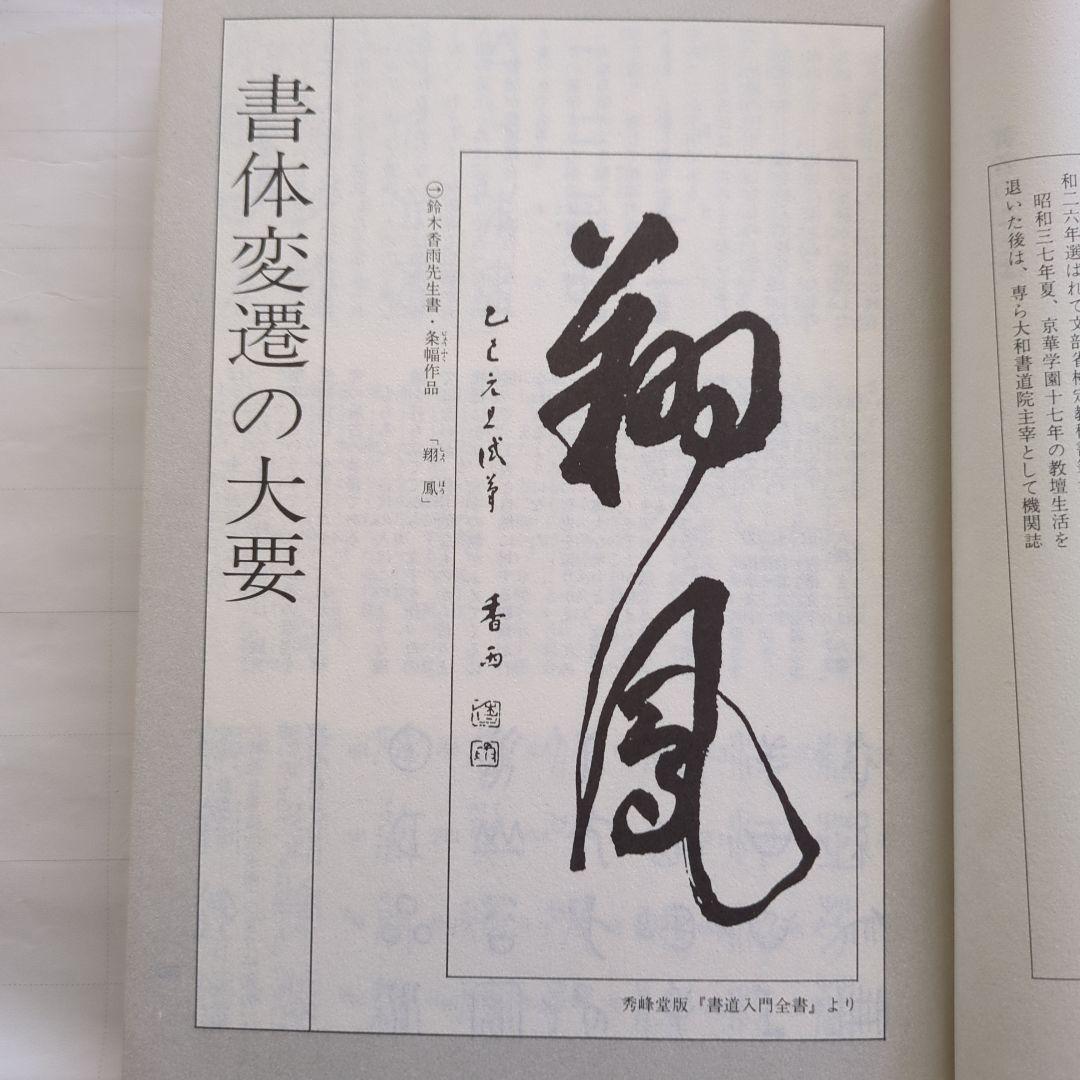 和二六年選ばれて文部省検定教科書
昭和三七年夏、京華学園十七年の教壇生活を
退いた後は、専ら大和書道院主宰として機関誌
翔鳳
乙巳元旦試筆 香雨
→鈴木香雨先生書・条幅作品 「翔鳳」
じょうふく
しょう ほう
書体変遷の大要
秀峰堂版『書道入門全書』より